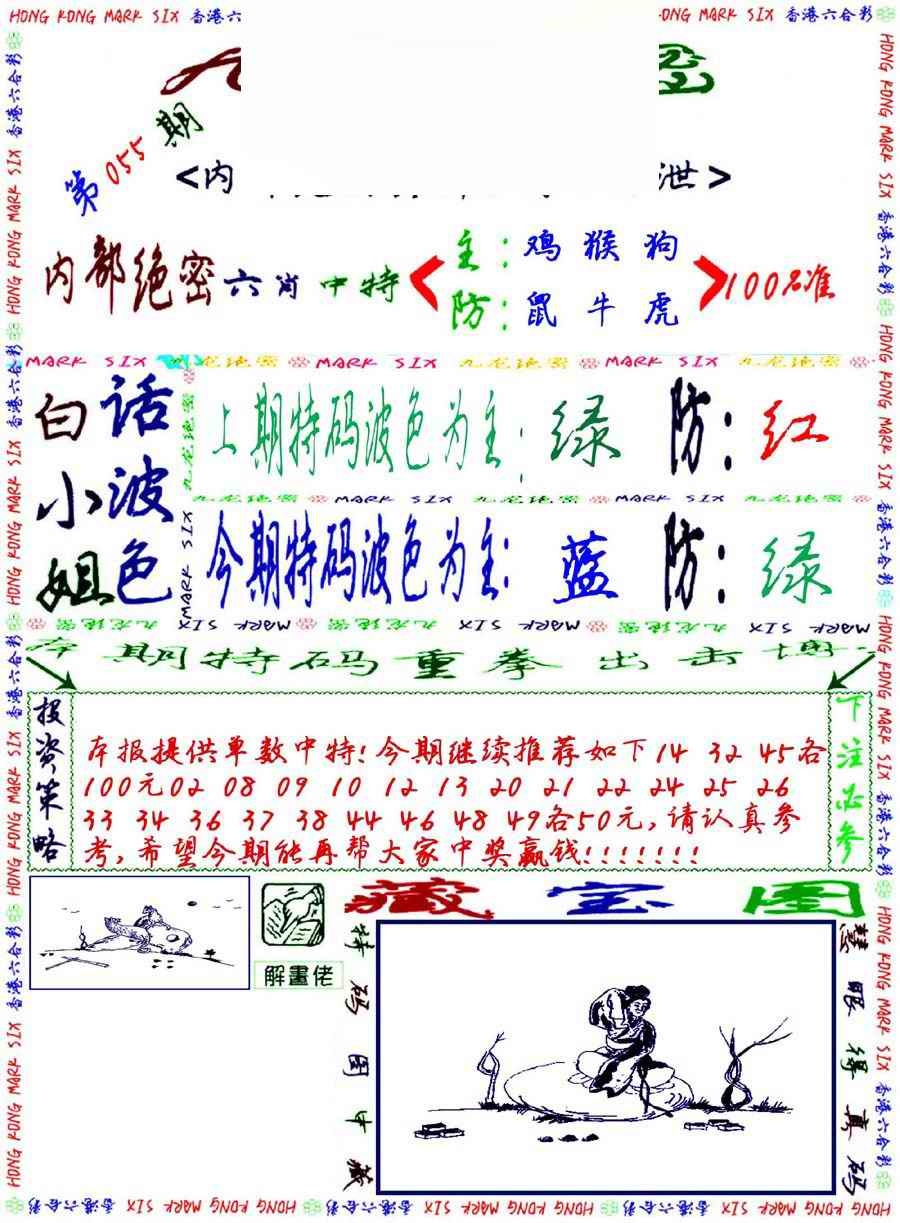 HONG KONG MARK SIX 香港六合彩
第055期
<内
泄>
内部绝密六肖中特
主：鸡猴狗
防：鼠牛虎
100%准
MARK SIX 九龙绝密 MARK SIX 九龙绝密 MARK SIX 九龙绝密
白话
小波
姐色
上期特码波色为主：绿 防：红
九龙绝密 MARK SIX 九龙绝密 MARK SIX 九龙绝密
今期特码波色为主：蓝 防：绿
九龙绝密 MARK SIX 九龙绝密 MARK SIX 九龙绝密 MARK SIX
本期特码重拳出击
投资策略
本报提供单数中特!今期继续推荐如下14 32 45各
100元02 08 09 10 12 13 20 21 22 24 25 26
33 34 36 37 38 44 46 48 49各50元,请认真参
考,希望今期能再帮大家中奖赢钱!!!!!!!
下注必参
解畫佬
藏宝图
特码图中藏
慧眼得真码
HONG KONG MARK SIX 香港六合彩